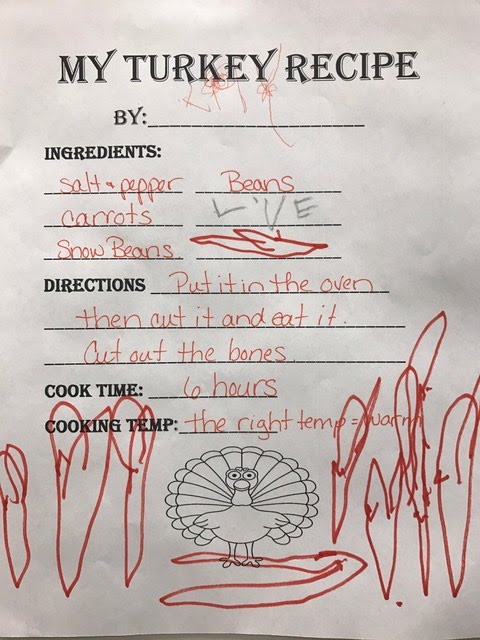 MY TURKEY RECIPE
BY:
INGREDIENTS:
salt & pepper Beans
carrots
Snow Beans
DIRECTIONS Put it in the oven
then cut it and eat it.
Cut out the bones
COOK TIME: 6 hours
COOKING TEMP: the right temp = warm